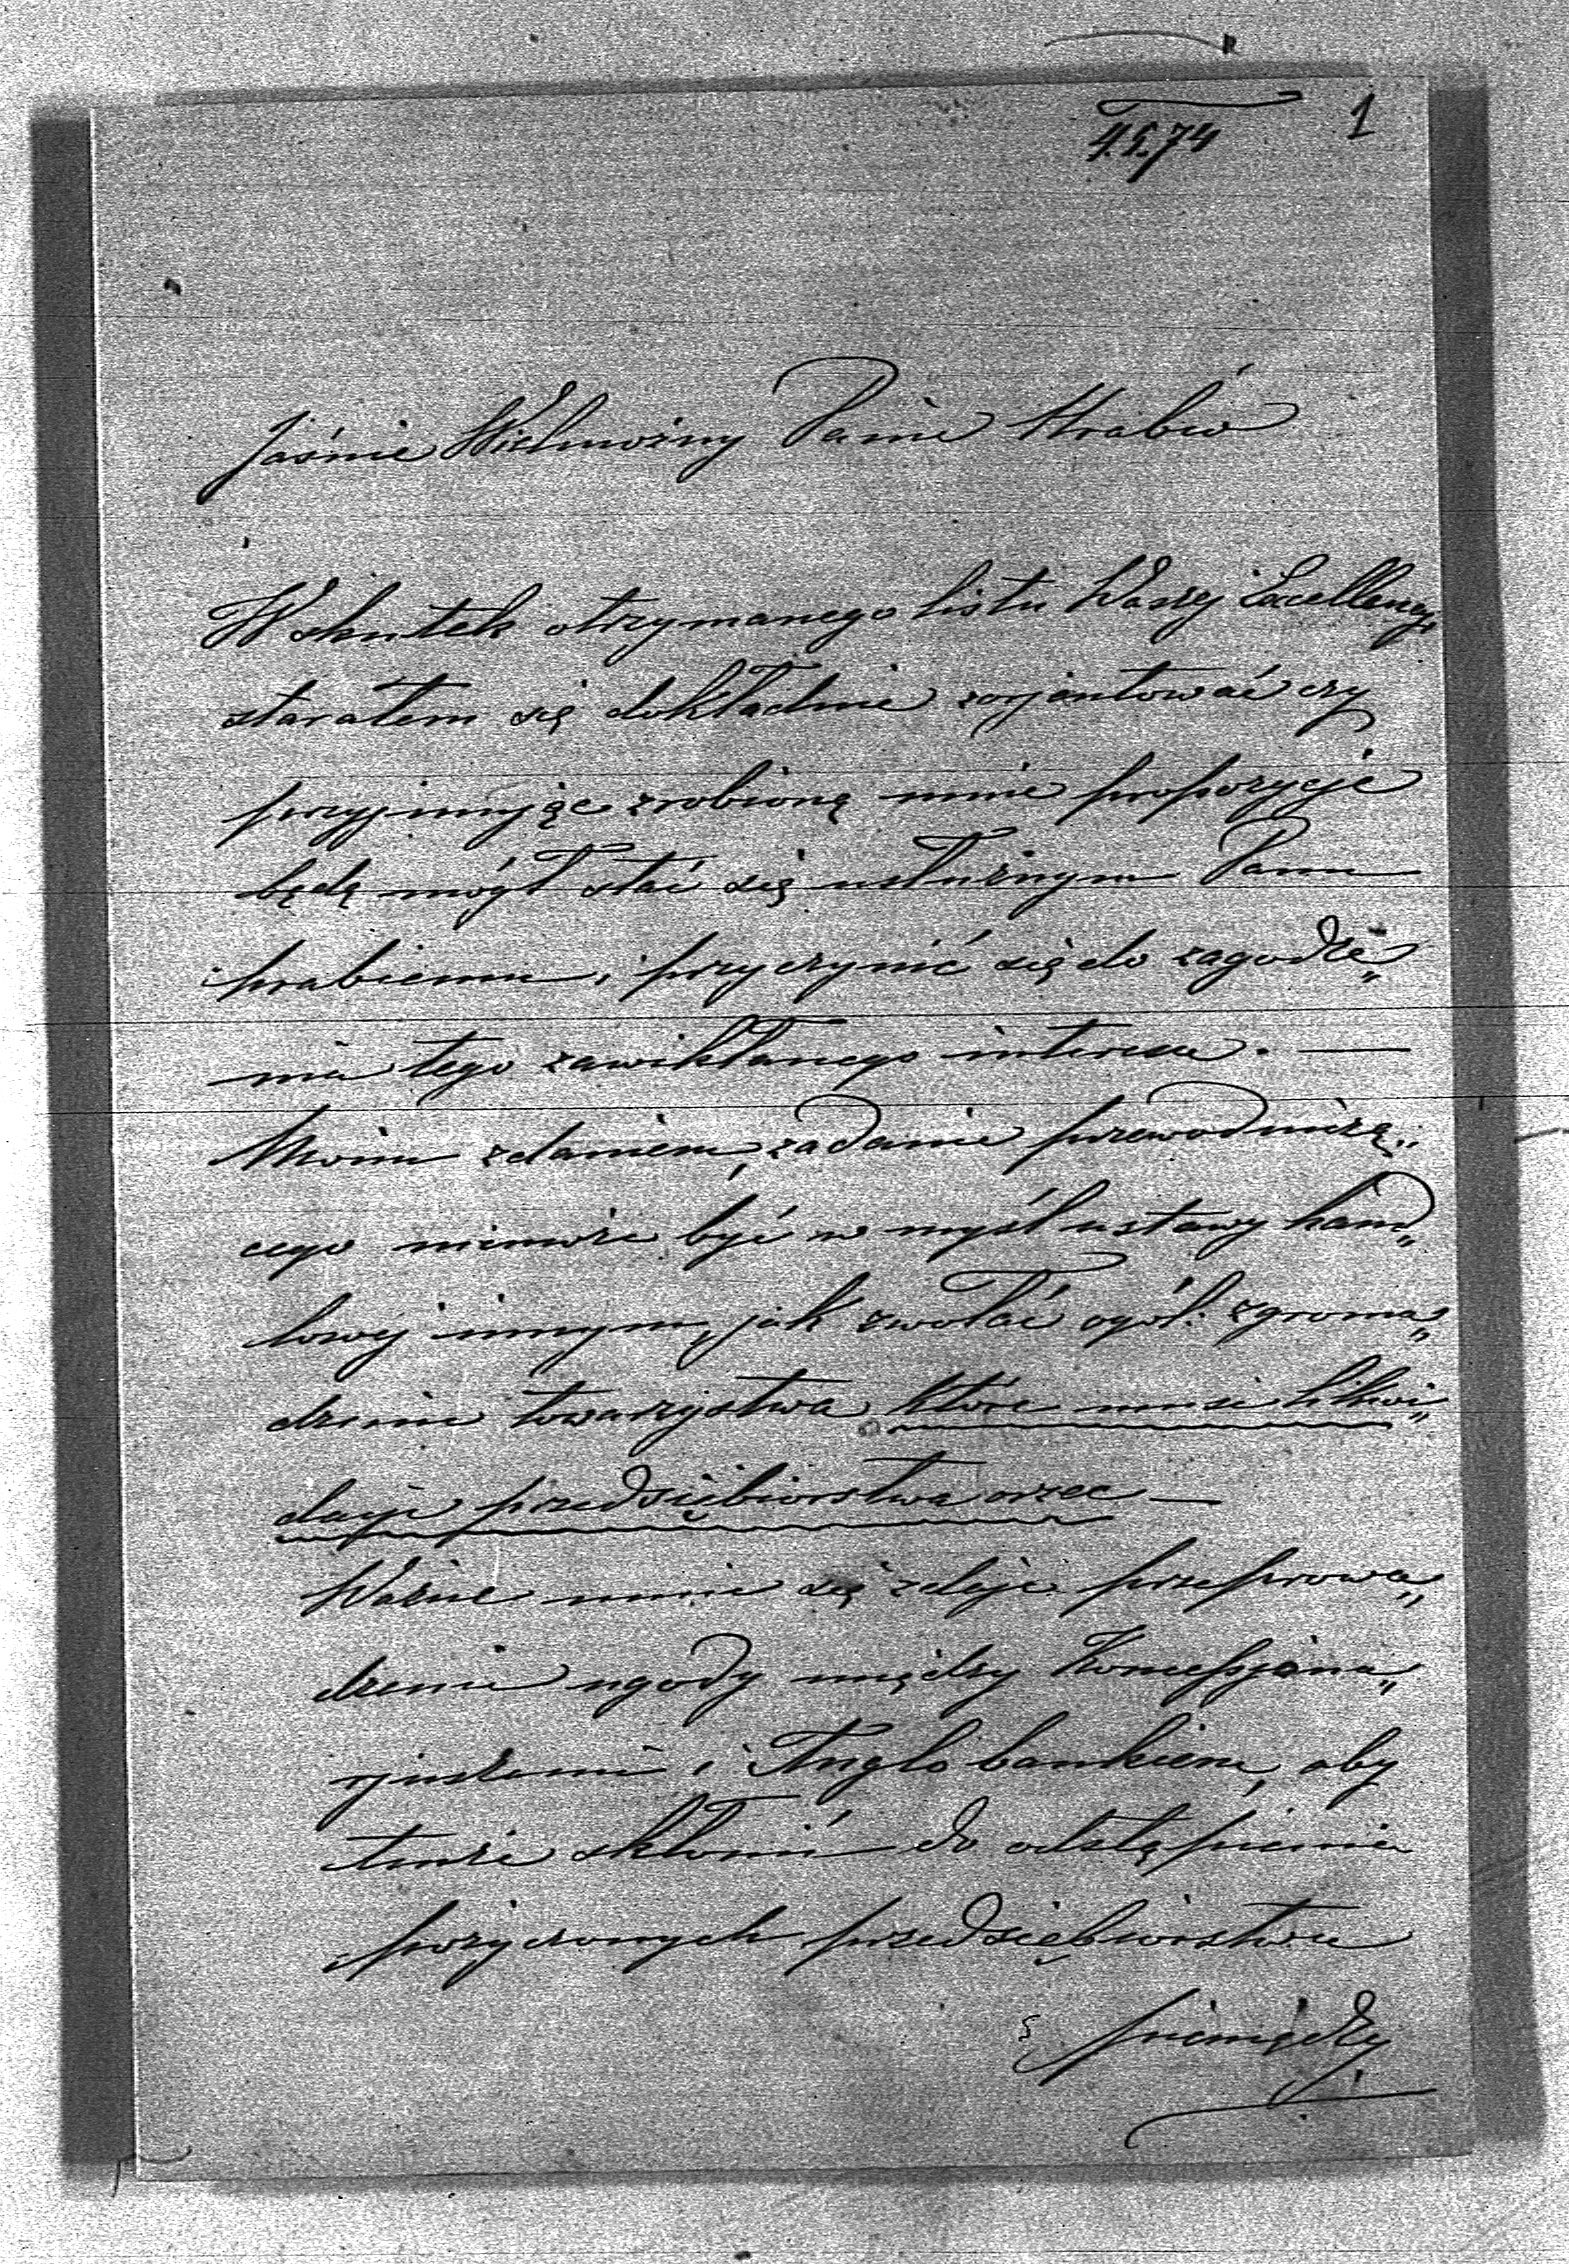 4.5.74
1
Jaśnie Wielmożny Panie Hrabio
W skutek otrzymanego listu Waszej Excellencyi
starałem się dokładnie zorjentować czy
przyjmując zrobioną mnie propozycje
będę mógł stać się usłużnym Panu
hrabiemu i przyczynić się do zagodze„
nia tego zawikłanego interesu. —
Moim zdaniem, zadanie przewodniczą„
cego niemoże być w myśl ustawy hand„
lowej innym, jak zwołać ogól. zgroma„
dzenie towarzystwa które musi likwi„
dacje przedsiębiorstwa orzec —
Ważne mnie się zdaje przeprowa„
dzenie ugody między Koncessjona„
rjuszami i Anglobankiem, aby
tenże skłonić do odstąpienia
pożyczonych przedsiębiorstwu
pieniędzy